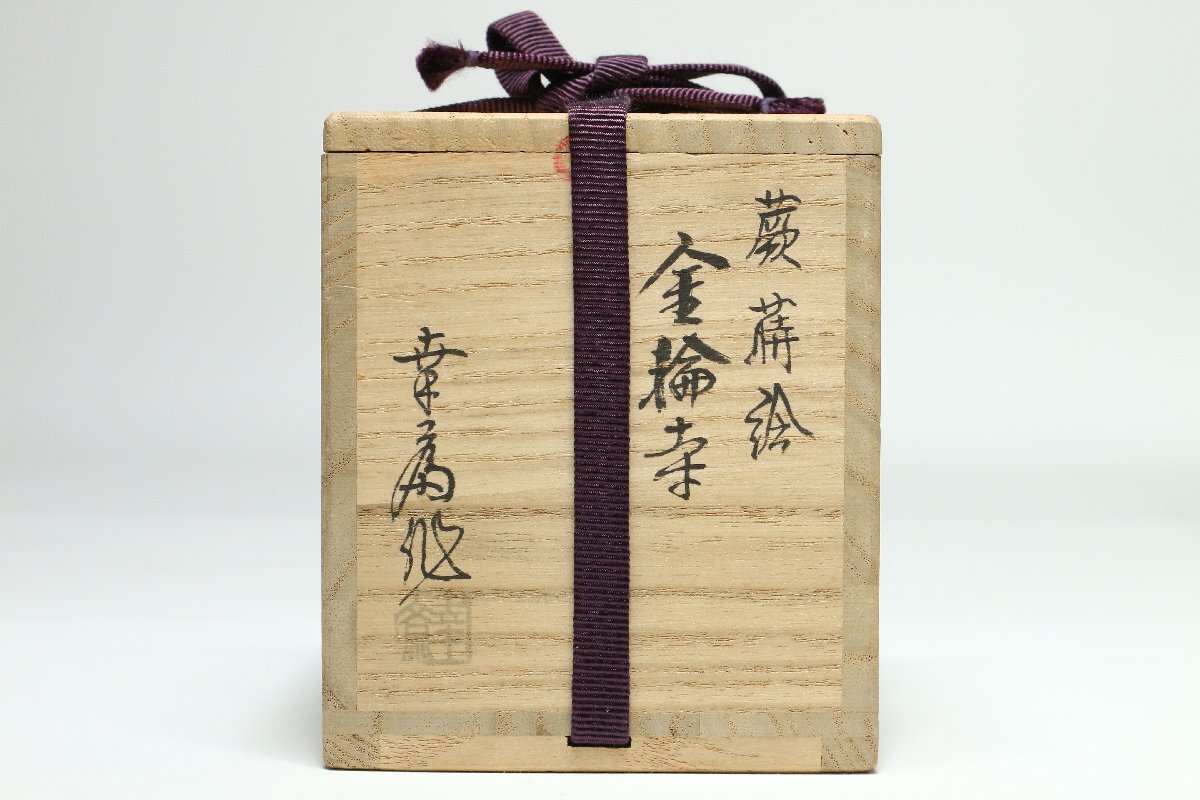 蕨蒔絵
金輪寺
幸斎作